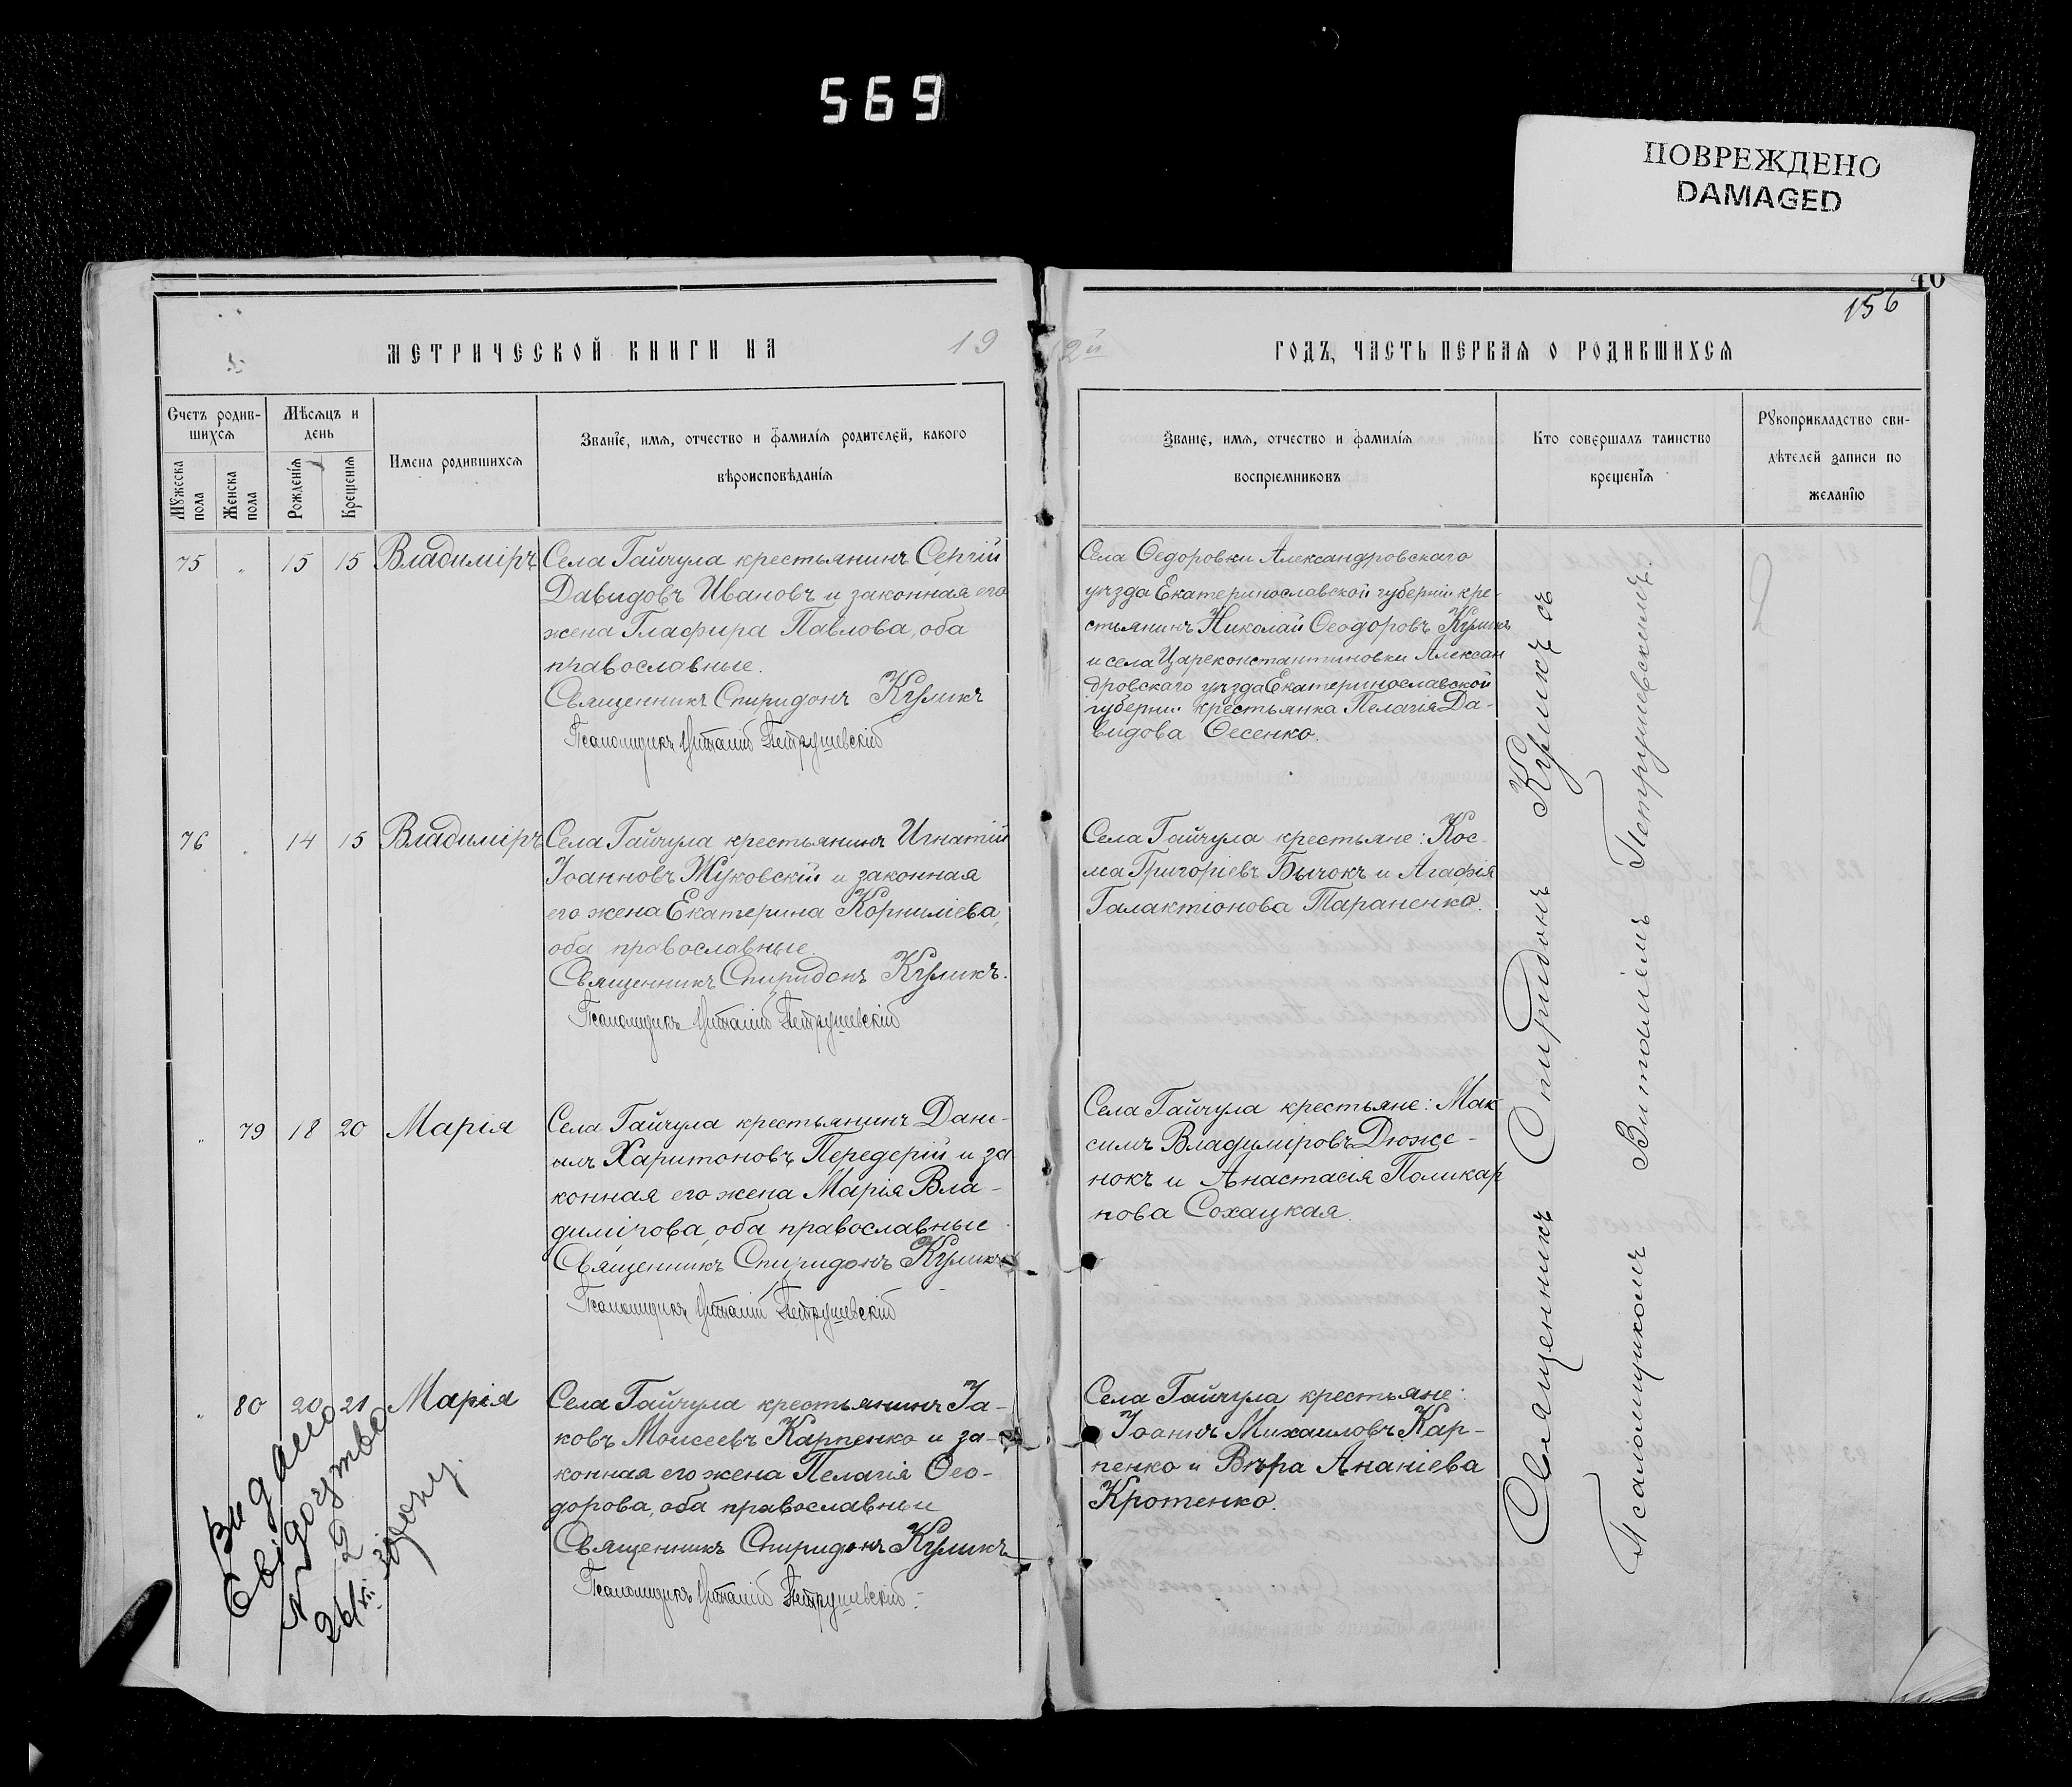 569
ПОВРЕЖДЕНО
DAMAGED
40
156
МЕТРИЧЕСКОЙ КНИГИ НА 19
12й ГОДЪ, ЧАСТЬ ПЕРВАЯ О РОДИВШИХСЯ
Счетъ родив-
шихся
Мѣсяцъ и
день
Имена родившихся
Званіе, имя, отчество и фамилія родителей, какого
вѣроисповѣданія
Мужеска
пола
Женска
пола
Рожденія
Крещенія
Званіе, имя, отчество и фамилія
воспріемниковъ
Кто совершалъ таинство
крещенія
Рукоприкладство сви-
дѣтелей записи по
желанію
75 15 15 Владиміръ
Села Гайчула крестьянинъ Сергій
Давидовъ Ивановъ и законная его
жена Глафира Павлова, оба
православные.
Священникъ Спиридонъ Куликъ
Псаломщикъ Виталій Петрушевскій
Села Ѳедоровки Александровскаго
уѣзда Екатеринославской губерніи кре-
стьянинъ Николай Ѳеодоровъ Куликъ
и села Цареконстантиновки Алексан
дровскаго уѣзда Екатеринославской
губерніи крестьянка Пелагія Да-
видова Ѳесенко.
76 14 15 Владиміръ
Села Гайчула крестьянинъ Игнатій
Іоанновъ Жуковскій и законная
его жена Екатерина Корниліева,
оба православные
Священникъ Спиридонъ Куликъ.
Псаломщикъ Виталій Петрушевскій
Села Гайчула крестьяне: Кос-
ма Григоріевъ Бычокъ и Агафія
Галактіонова Тараненко.
79 18 20 Марія
Села Гайчула крестьянинъ Дані-
илъ Харитоновъ Передерій и за
конная его жена Марія Вла-
димірова, оба православные
Священникъ Спиридонъ Куликъ
Псаломщикъ Виталій Петрушевскій
Села Гайчула крестьяне: Мак
симъ Владиміровъ Дюже-
нокъ и Анастасія Поликар
пова Сохацкая.
80 20 21 Марія
Села Гайчула крестьянинъ Іа-
ковъ Моисеевъ Карпенко и за-
конная его жена Пелагія Ѳео-
дорова, оба православные
Священникъ Спиридонъ Куликъ
Псаломщикъ Виталій Петрушевскій.
Села Гайчула крестьяне:
Іоаннъ Михаиловъ Кар-
пенко и Вѣра Ананіева
Кротенко.
Видано
Свідоцтво
Священникъ Спиридонъ Куликъ съ
Псаломщикомъ Виталіемъ Петрушевскимъ.